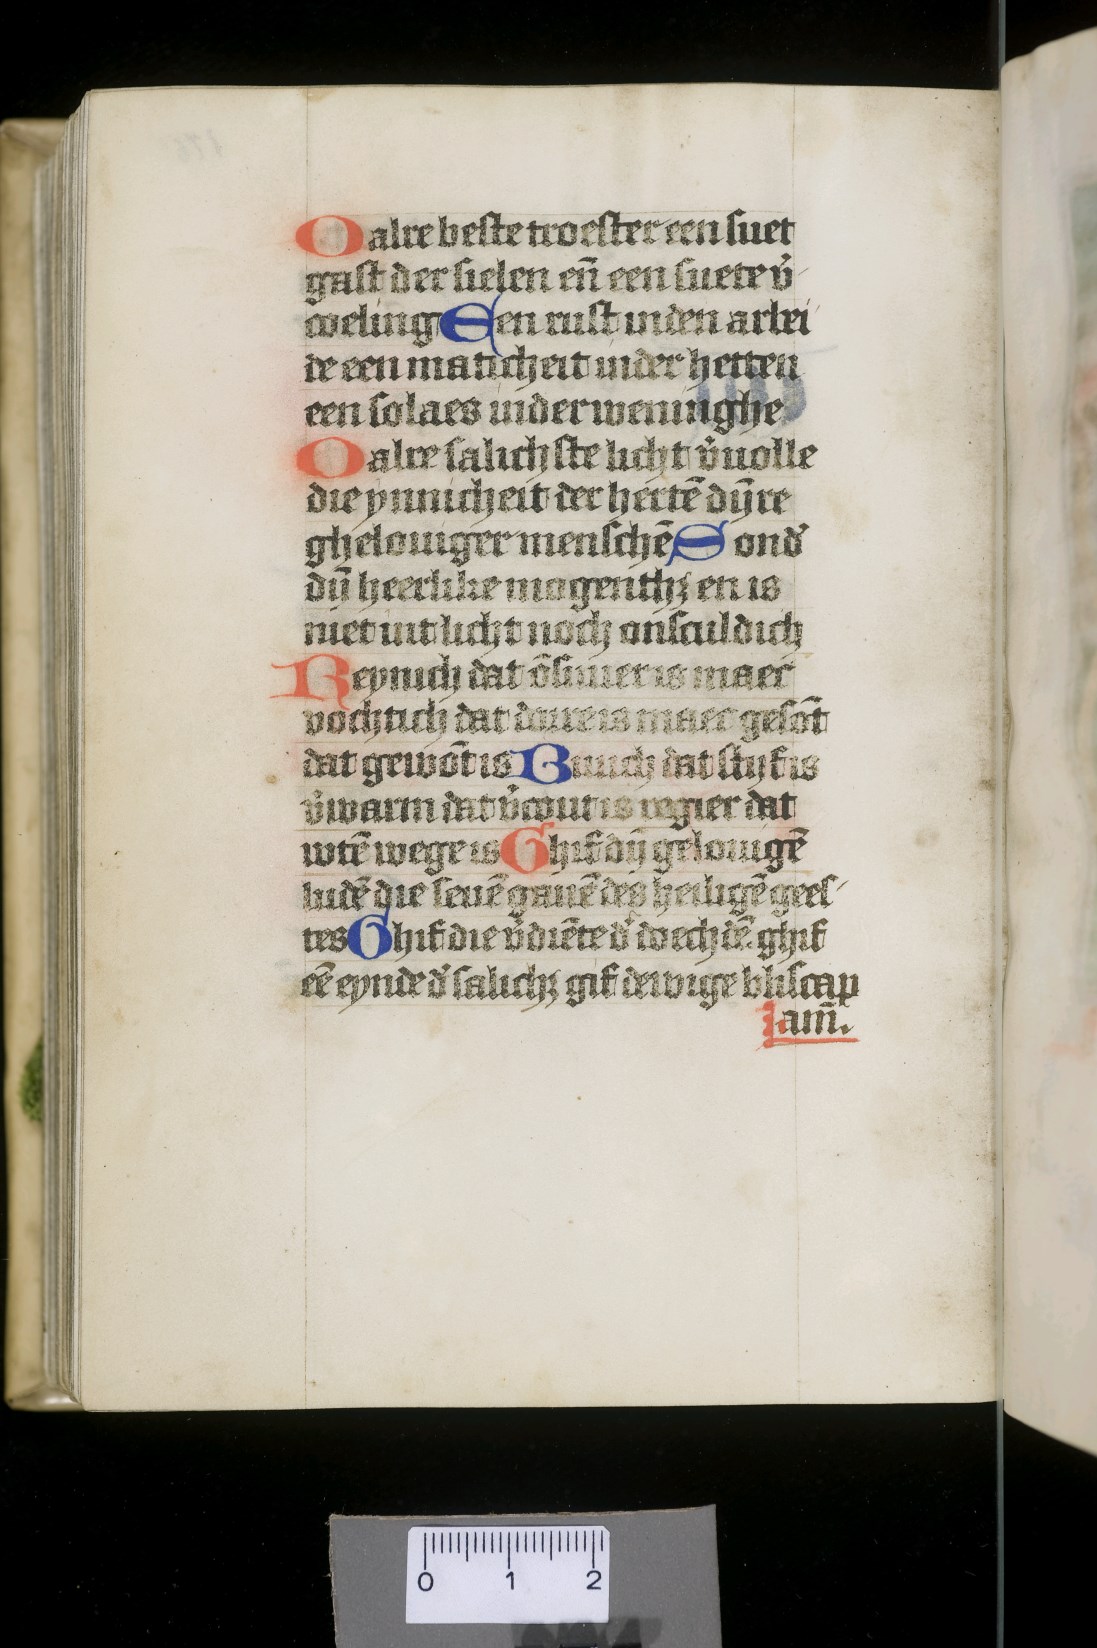 O alre beste troester een suet
gast der sielen en̄ een suete v̾
coeling Een rust inden arbei
de een maticheit inder hetten
een solaes inder weninghe
O alre salichste licht v̾uolle
die ynnicheit der hertē dijn̄re
ghelouiger menschē Sond̾
dijn̄ heerlike mogenthꝫ en is
niet int licht noch onsculdich
Reynich dat o̅suuer is maec
vochtich dat durre is maec gesōt
dat gewōt is Buuch dat stijf is
v̾warm dat v̾cout is regier dat
wtē wege is Ghif dijn̄ gelouigē
ludē die seuē gauē des heiligē gees
tes Ghif die v̾diēte d̾ doechdē ghif
eē eynde d̾ salichꝫ gif dewige bliscap
am̄.
0 1 2